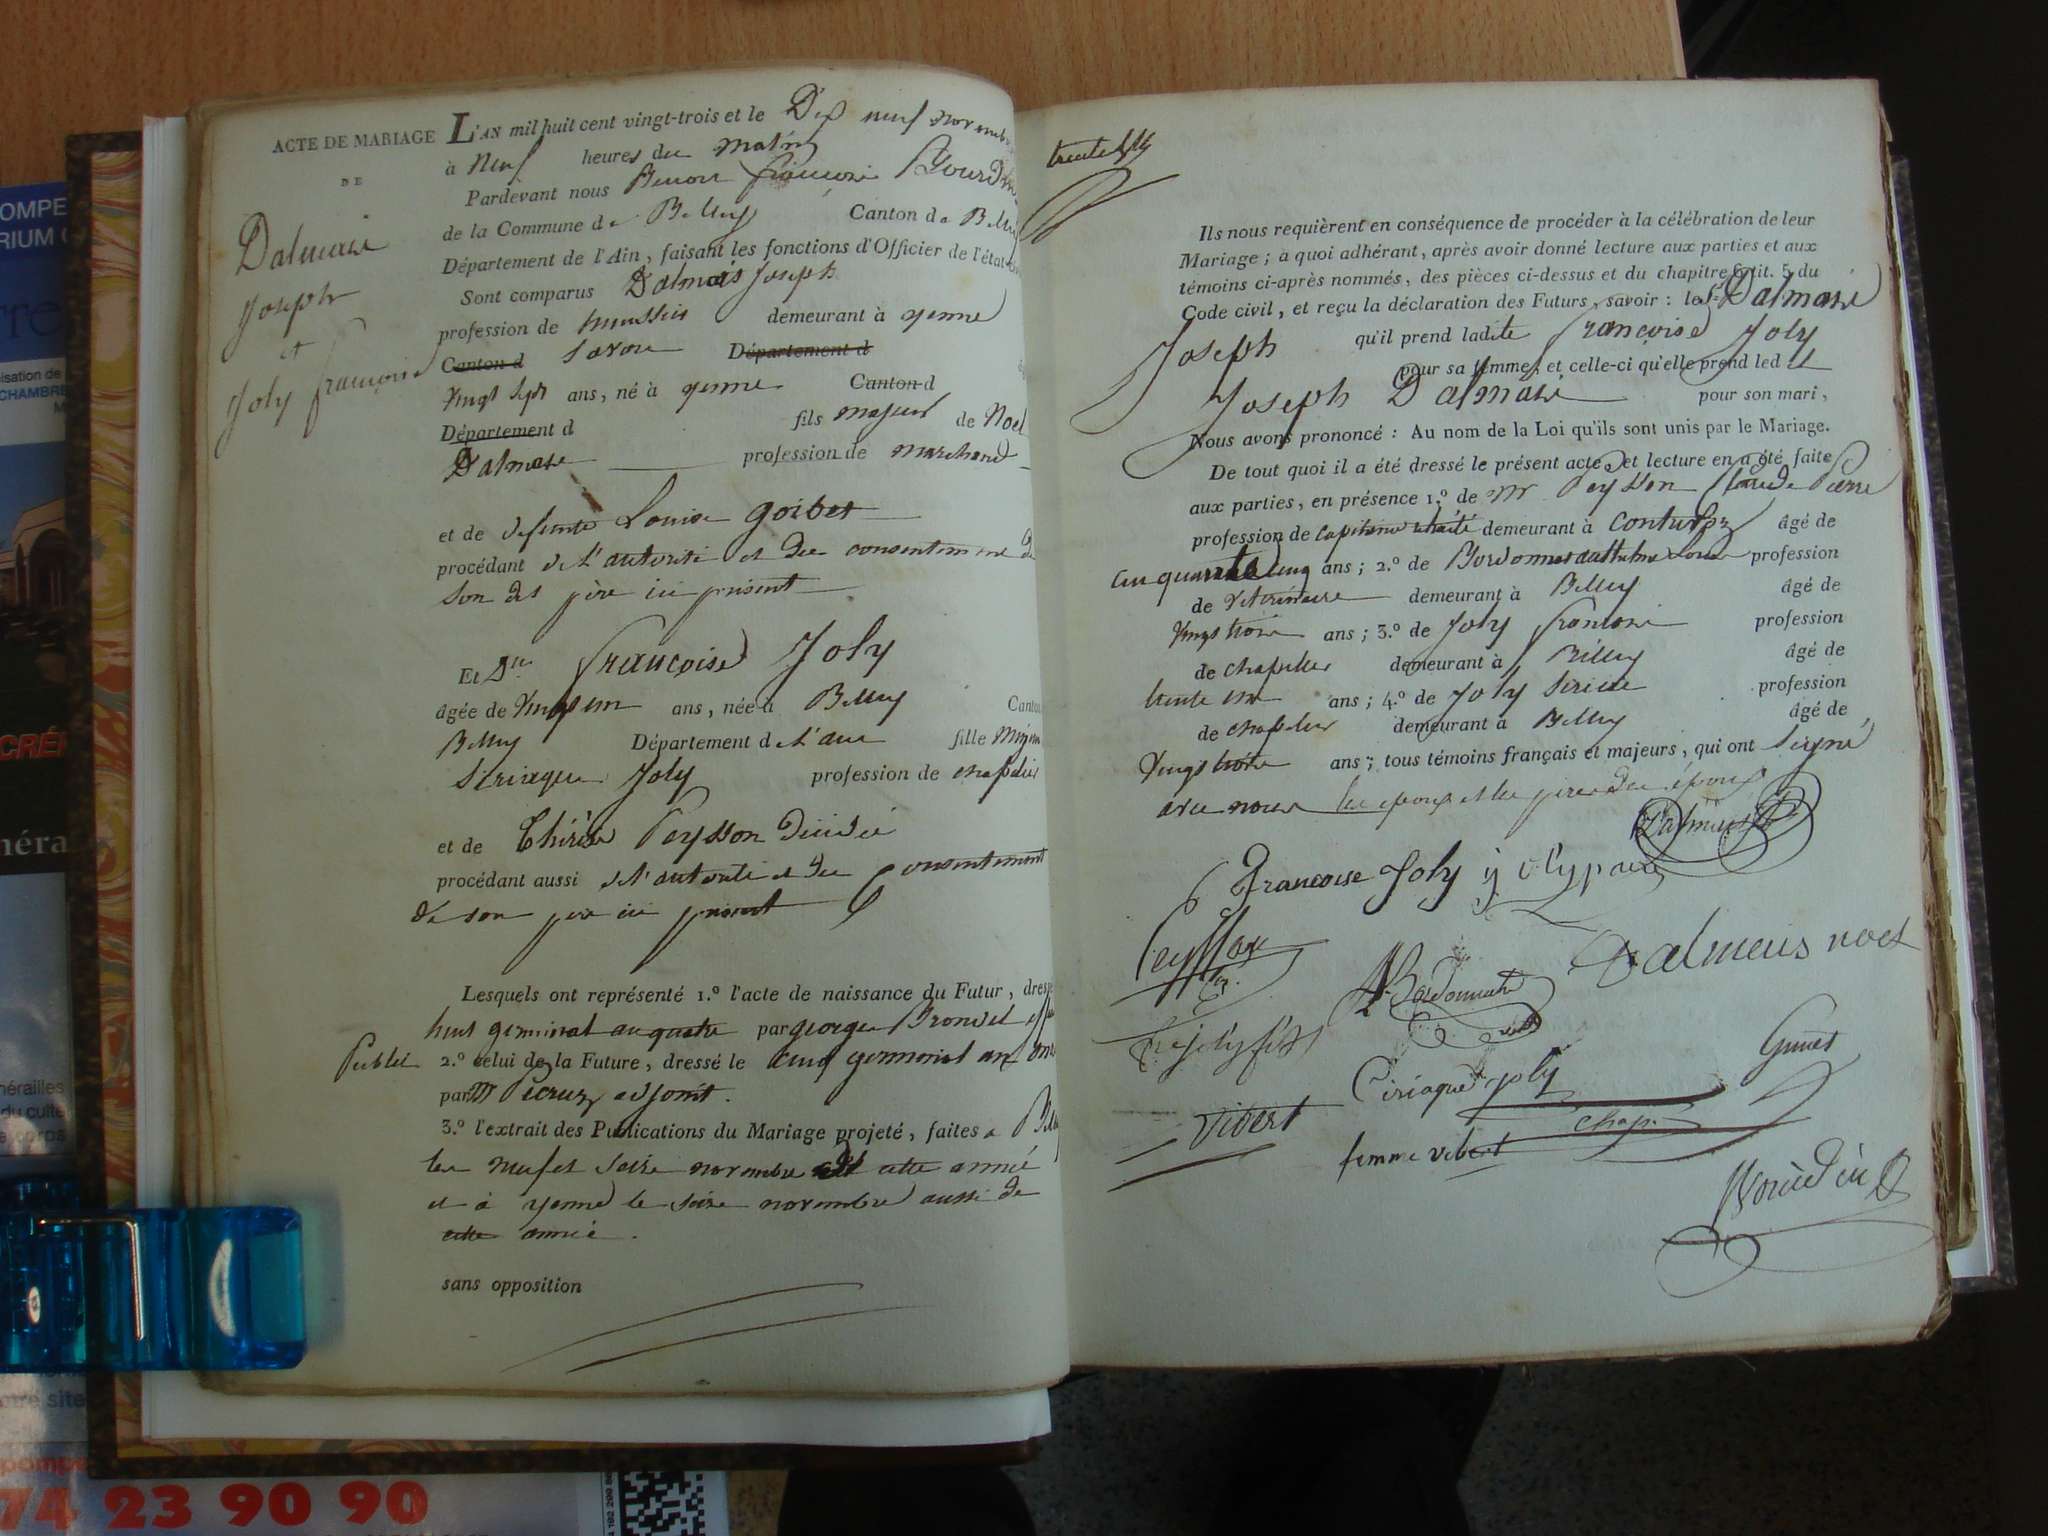 ACTE DE MARIAGE
DE
Dalmais
Joseph
et
Joly françoise
L'AN mil huit cent vingt-trois et le Dix neuf novembre
à Neuf heures du matin
Pardevant nous Benoit françois
de la Commune de Belley Canton de Belley
Département de l'Ain, faisant les fonctions d'Officier de l'état
Sont comparus Dalmais Joseph
profession de huissier demeurant à yenne
Canton d Savoie Département d
vingt sept ans, né à yenne Canton d
Département d fils majeur de Noel
Dalmais profession de marchand
et de defunte Louise goibet
procédant de l'autorité et du consentement de
son dit père ici présent
Et Dlle françoise Joly
âgée de vingt un ans, née à Belley Canton
Belley Département de l'ain fille
Siriaque Joly profession de chapelier
et de Thérèse Peysson
procédant aussi de l'autorité et du consentement
de son père ici présent
Lesquels ont représenté 1.º l'acte de naissance du Futur, dressé
huit germinal an quatre par george
Publié 2.º celui de la Future, dressé le cinq germinal an onze
par Mr adjoint.
3.º l'extrait des Publications du Mariage projeté, faites a
les neuf et seize novembre cette année
et à yenne le seize novembre aussi de
cette année.
sans opposition
Ils nous requièrent en conséquence de procéder à la célébration de leur
Mariage; à quoi adhérant, après avoir donné lecture aux parties et aux
témoins ci-après nommés, des pièces ci-dessus et du chapitre 6 tit. 5 du
Code civil, et reçu la déclaration des Futurs, savoir: le Sr Dalmais
Joseph qu'il prend ladite françoise Joly
pour sa femme, et celle-ci qu'elle prend led it
Joseph Dalmais pour son mari,
Nous avons prononcé: Au nom de la Loi qu'ils sont unis par le Mariage.
De tout quoi il a été dressé le présent acte, et lecture en a été faite
aux parties, en présence 1.º de Mr Peysson Claude Pierre
profession de capitaine retraité demeurant à âgé de
cinquante cinq ans; 2.º de profession
de vétérinaire demeurant à Belley âgé de
vingt trois ans; 3.º de Joly françois profession
de chapelier demeurant à Belley âgé de
trente un ans; 4.º de Joly profession
de chapelier demeurant à Belley âgé de
ans; tous témoins français et majeurs, qui ont signé
avec nous les epoux et les pères des époux
Dalmais
francoise Joly
Peysson
Dalmeus noel
Ciriaque joly
chap.
Vibert
femme vibert
74 23 90 90